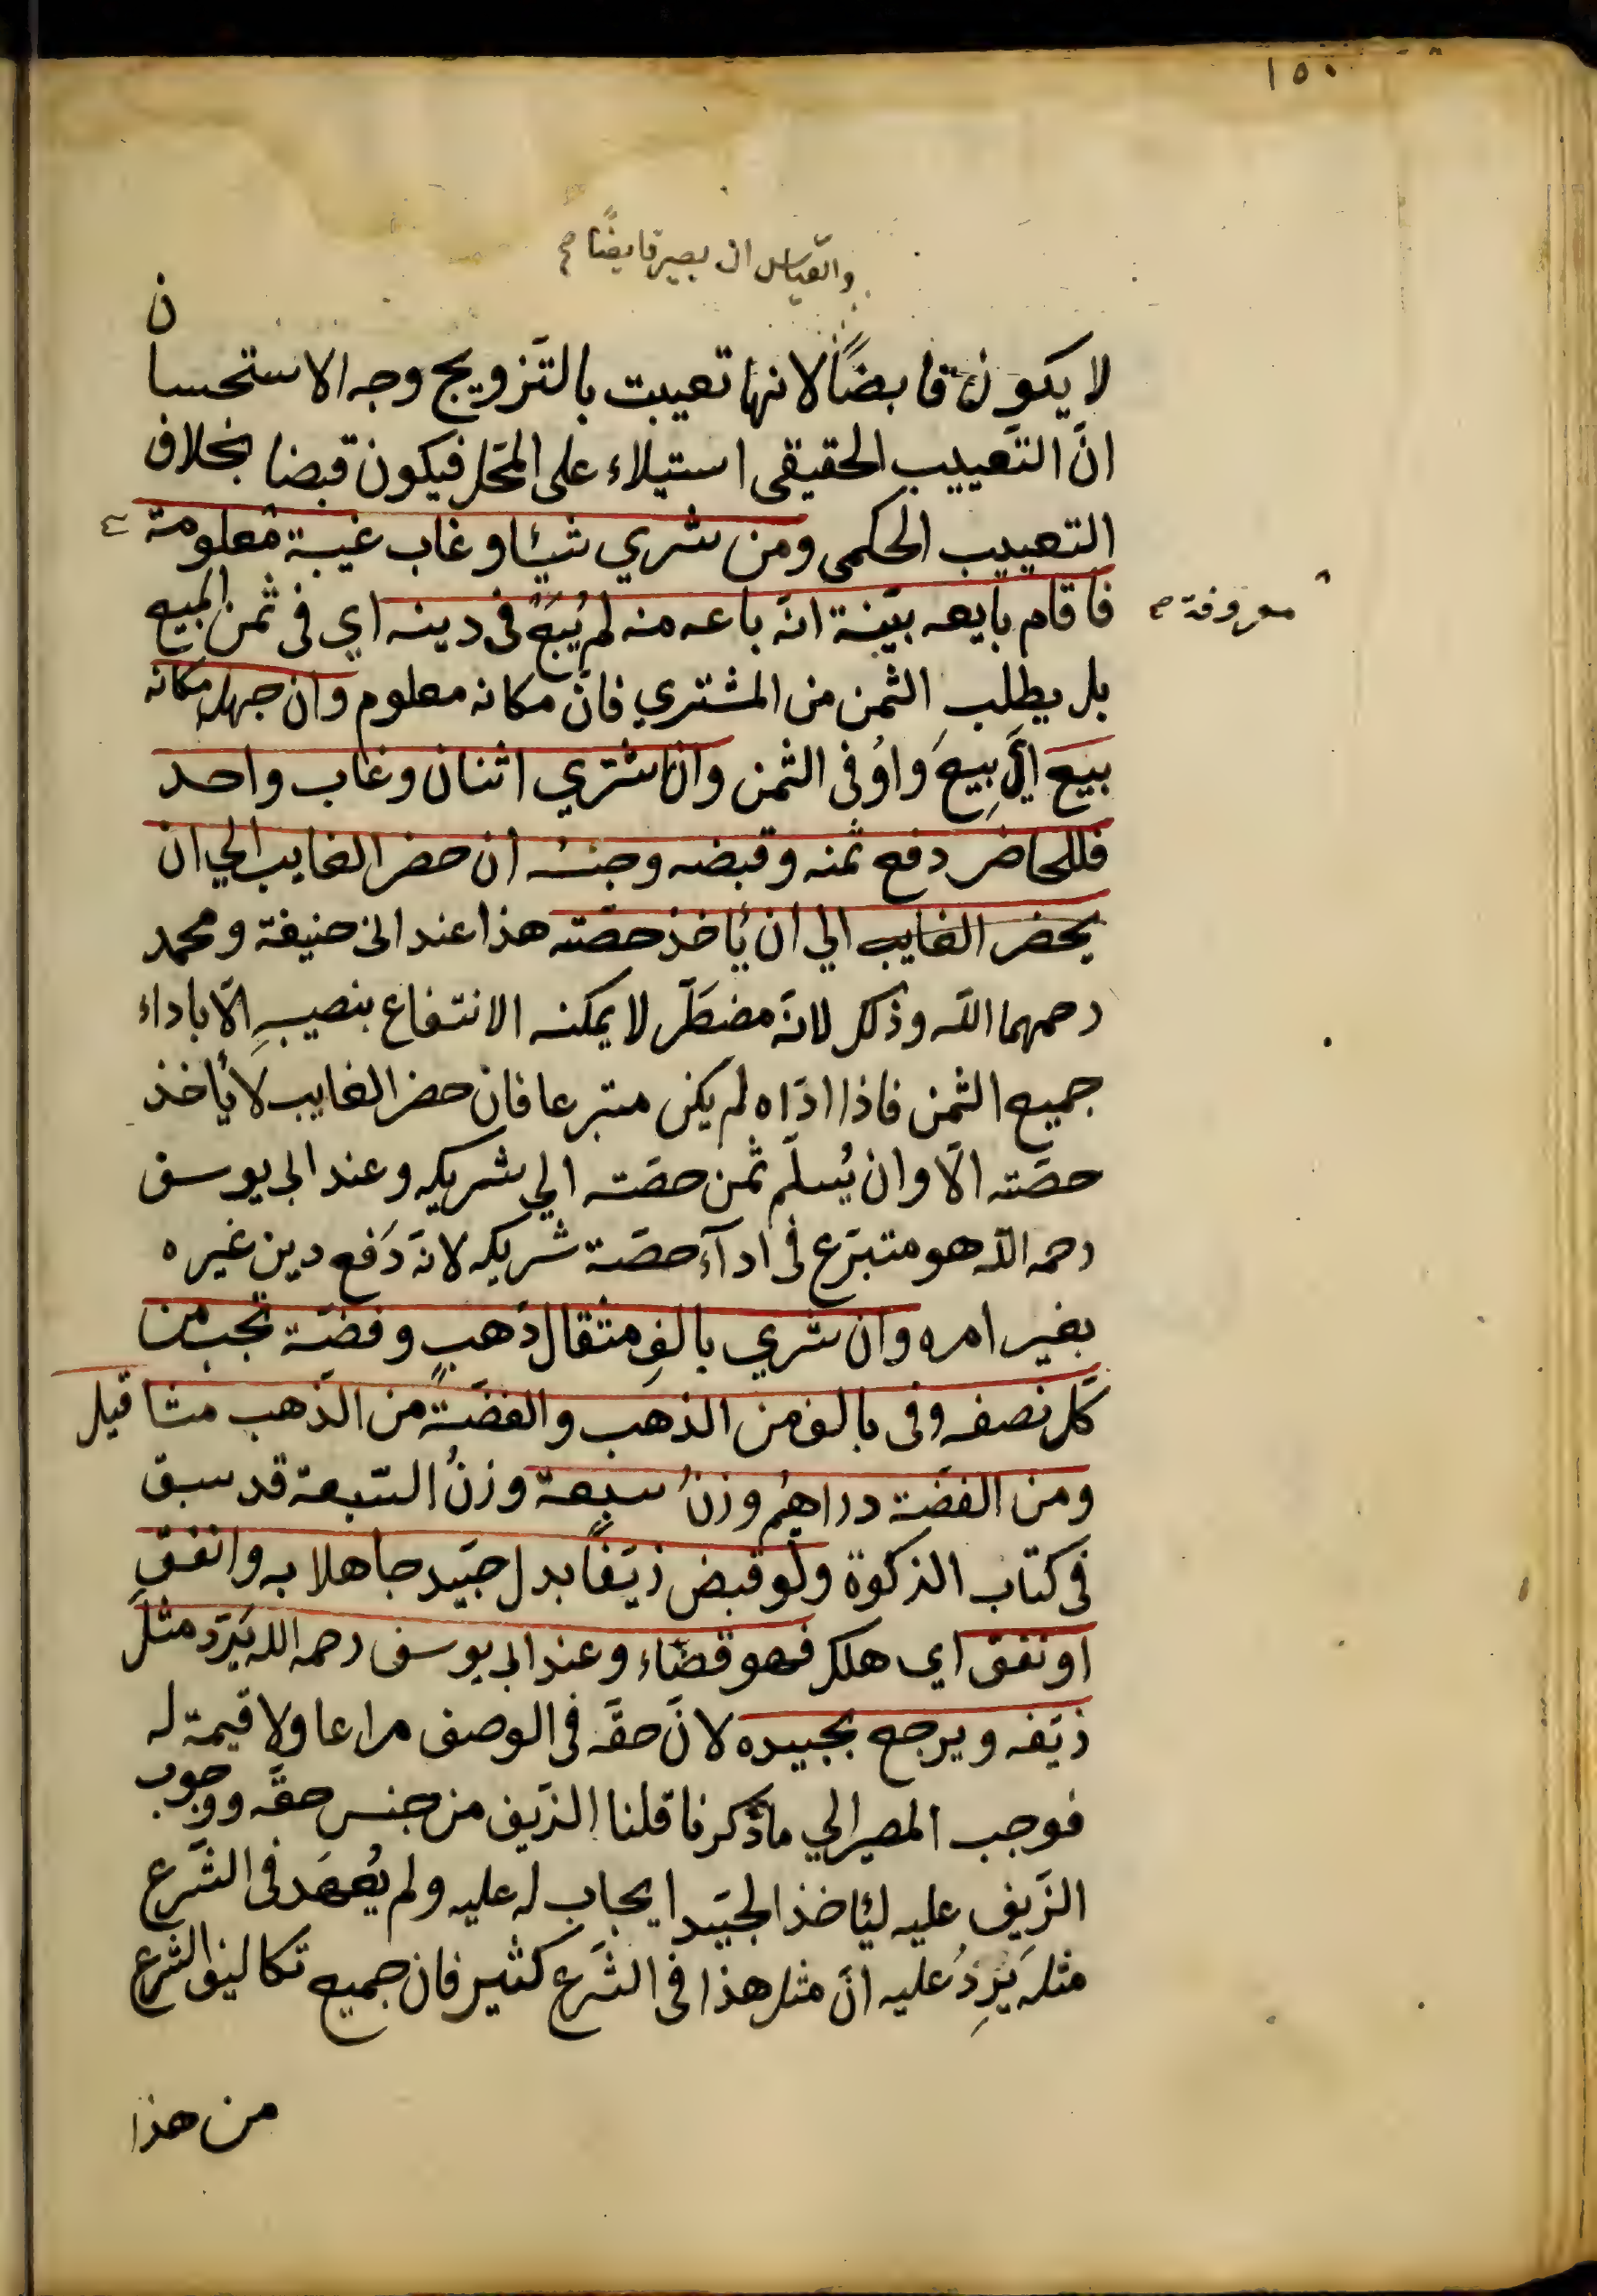 ١٥٠
والقياس ان يصير قابضًا صح
لا يكون قابضًا لانها تعيبت بالتَزويج وجه الاستحسان
انَّ التَّعييب الحقيقى استيلاء على المحَل فيكون قبضا بخلاف
التعييب الحكمى ومن شري شيئا وغاب غيبة معلومة
معروفة صح
فاقام بايعه بيّنة انّه باعه منه لم يُبَعْ فى دينه اي فى ثمن المبيع
بل يطلب الثمن من المشتري فانّ مكانه معلوم وان جهل مكانه
بيع اي بِيعَ واُوفى الثمن وان اشتري اثنان وغاب واحد
فللحاضر دفع ثمنه وقبضه وحبسُه ان حضر الغايب الي ان
يحضر الغايب الي ان ئاخذ حصّته هذا عند ابى حنيفة ومحمد
رحمهما اللّه وذلك لانّه مضطَرّ لا يمكنه الانتفاع بنصيبِه الّا باداء
جميع الثمن فاذا ادّاه لم يكن متبرعا فان حضر الغايب لا ئاخذ
حصّته الّا وان يُسلّم ثمن حصّته الي شريكه وعند ابى يوسف
رحمه اللّه هو متبرّع فى ادآء حصّة شريكه لانّه دَفع دين غيره
بغير امره وان شري بالفِ مثقال ذَهبٍ وفضّةٍ تجب من
كلٍّ نصفه وفى بالف من الذهب والفضّة من الذَهب مثاقيل
ومن الفضّة دراهمُ وزنُ سبعة وزنُ السّبعة قد سبق
فى كتاب الزكوة ولو قبض زيّفًا بدل جيّد جاهلا به وانفق
او نفق اي هلك فهو قضاء وعند ابى يوسف رحمه الله يَرّد مثلَ
زيّفه ويرجع بجيده لانَّ حقّه فى الوصف مراعا ولا قيمة له
فوجب المصير الي ماذكرنا قلنا الزّيف من جنس حقّه ووجوب
الزَيف عليه لئاخذ الجيّد ايجاب له عليه ولم يُعهَد فى الشَّرع
مثله يَرِدُ عليه انّ مثل هذا فى الشَرع كثير فان جميع تكاليف الشرع
من هذا